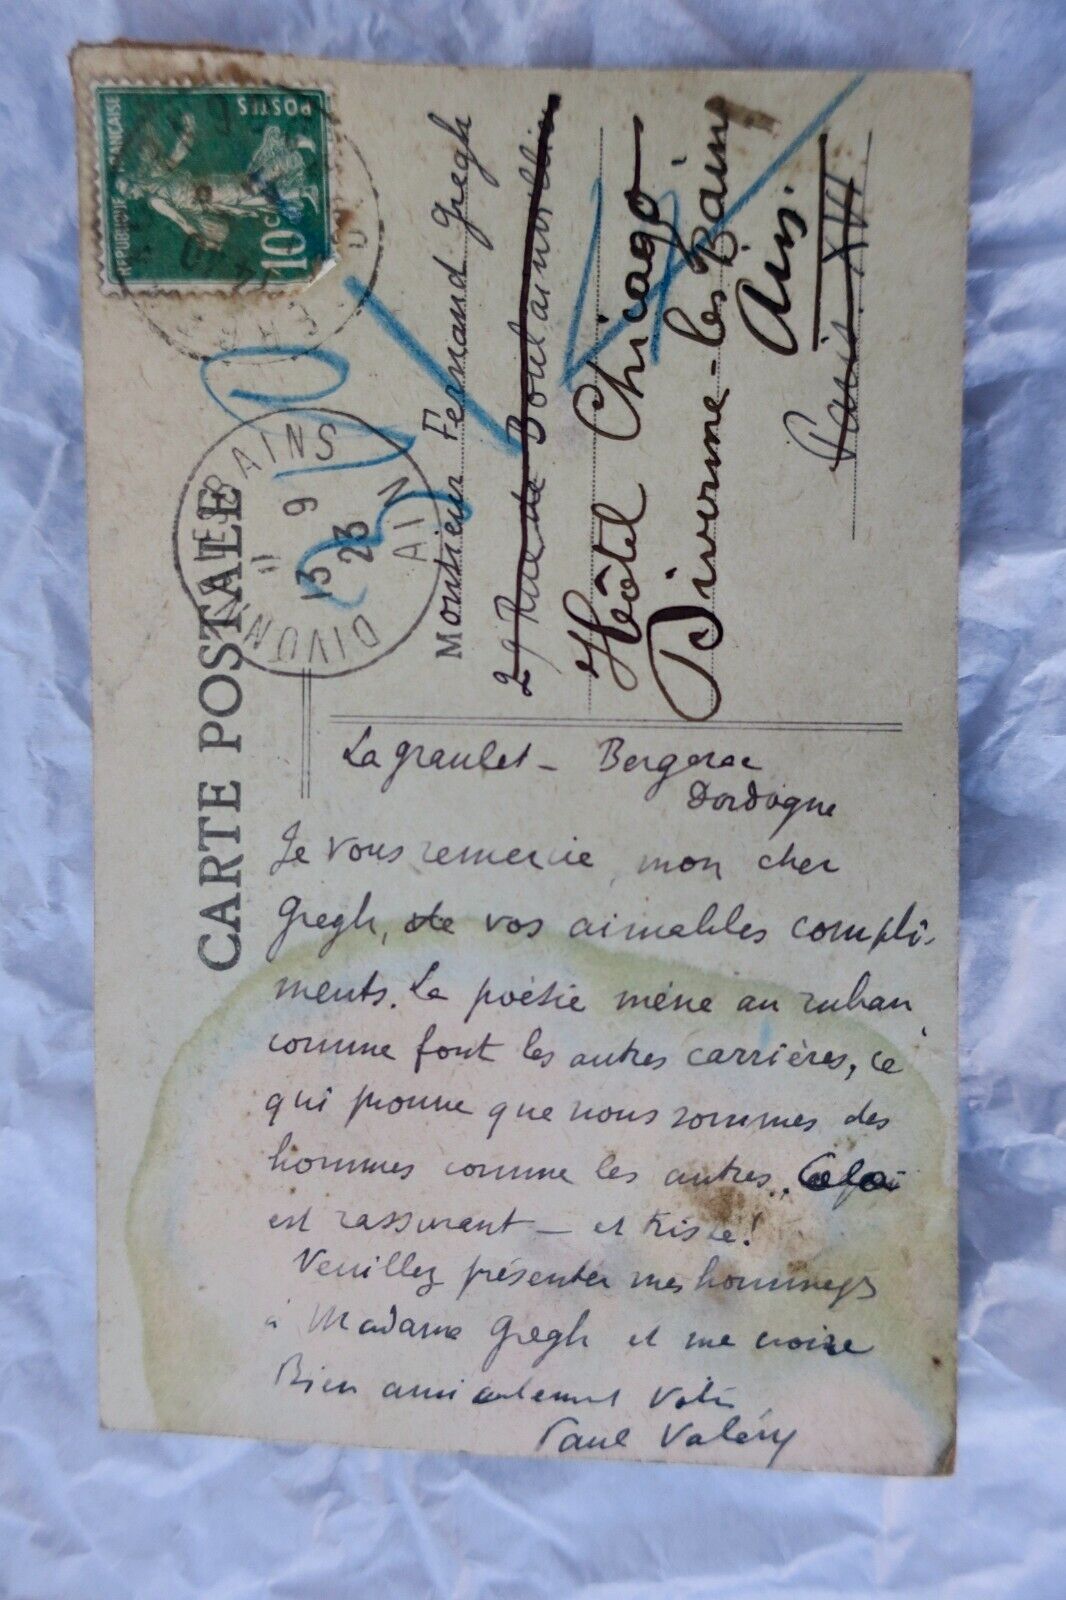 CARTE POSTALE
RÉPUBLIQUE FRANÇAISE
POSTES
10c
DIVONNE-LES-BAINS
11
13 9
23
AIN
Monsieur Fernand Gregh
29 Rue de Boulainvilliers
Hôtel Chicago
Divonne-les-Bains
Ain.
Paris XVI
Lagraulet - Bergerac
Dordogne
Je vous remercie, mon cher
Gregh, de vos aimables compli-
ments. La poésie mène au ruban
comme font les autres carrières, ce
qui prouve que nous sommes des
hommes comme les autres. Cela
est rassurant — et triste!
Veuillez présenter mes hommages
à Madame Gregh et me croire
Bien amicalement vôtre
Paul Valéry